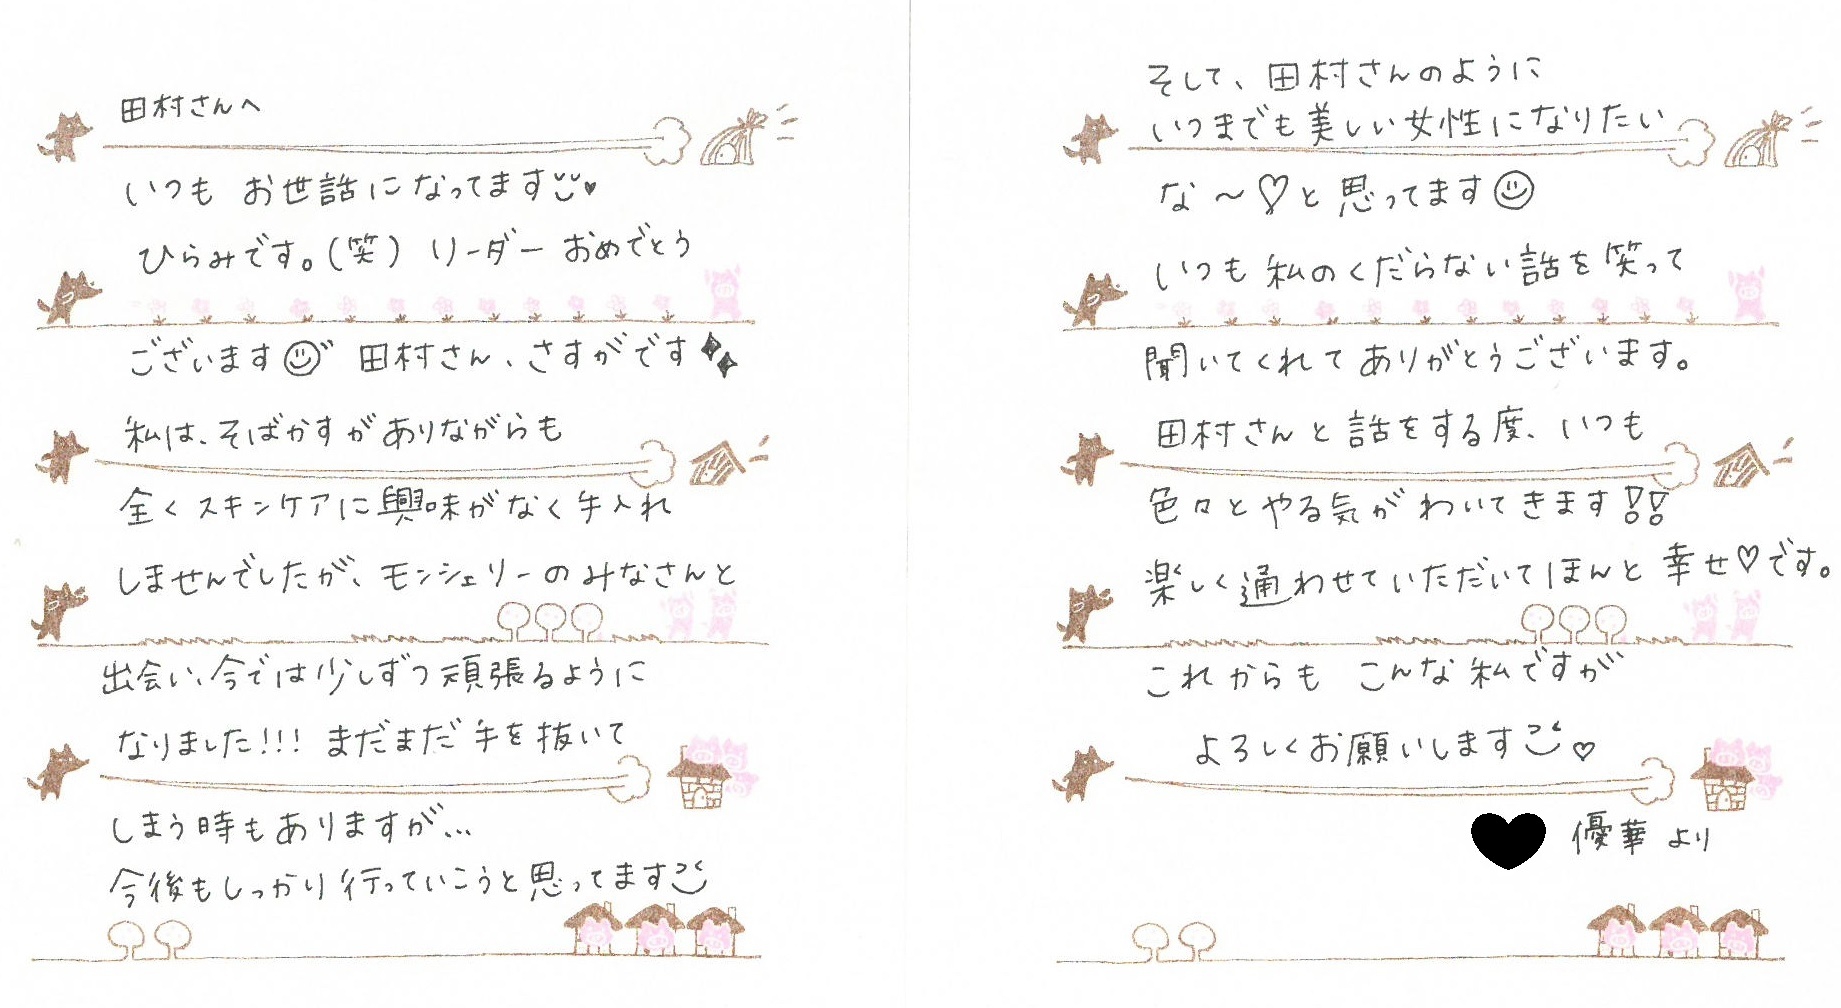 田村さんへ
いつも お世話になってます♥
ひらみです。(笑) リーダー おめでとう
ございます☺ 田村さん、さすがです✦✦
私は、そばかすがありながらも
全くスキンケアに興味がなく手入れ
しませんでしたが、モンシェリーのみなさんと
出会い、今では少しずつ頑張るように
なりました!!! まだまだ手を抜いて
しまう時もありますが...
今後もしっかり行っていこうと思ってます
そして、田村さんのように
いつまでも美しい女性になりたい
な〜♡と思ってます☺
いつも私のくだらない話を笑って
聞いてくれてありがとうございます。
田村さんと話をする度、いつも
色々とやる気がわいてきます!!
楽しく通わせていただいてほんと幸せ♡です。
これからも こんな私ですが
よろしくお願いします♡
♥ 優華 より